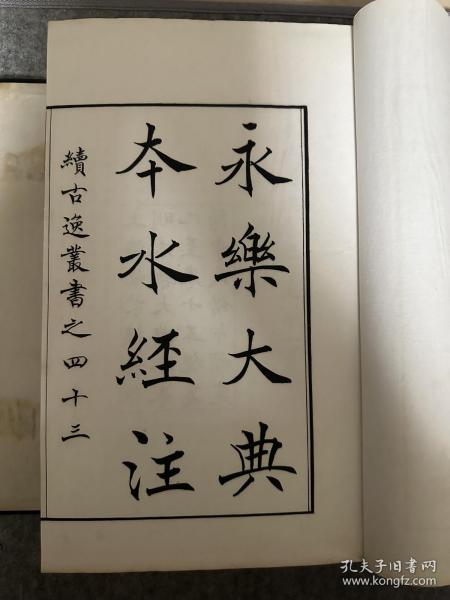 永樂大典
本水經注
續古逸叢書之四十三
孔夫子旧书网
www.kongfz.com